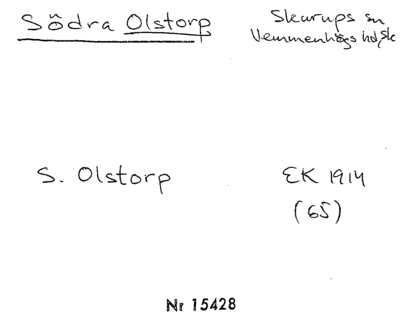 Södra Olstorp
Skurups sn
Vemmenhögs hd, sk
S. Olstorp
EK 1914
(65)
Nr 15428